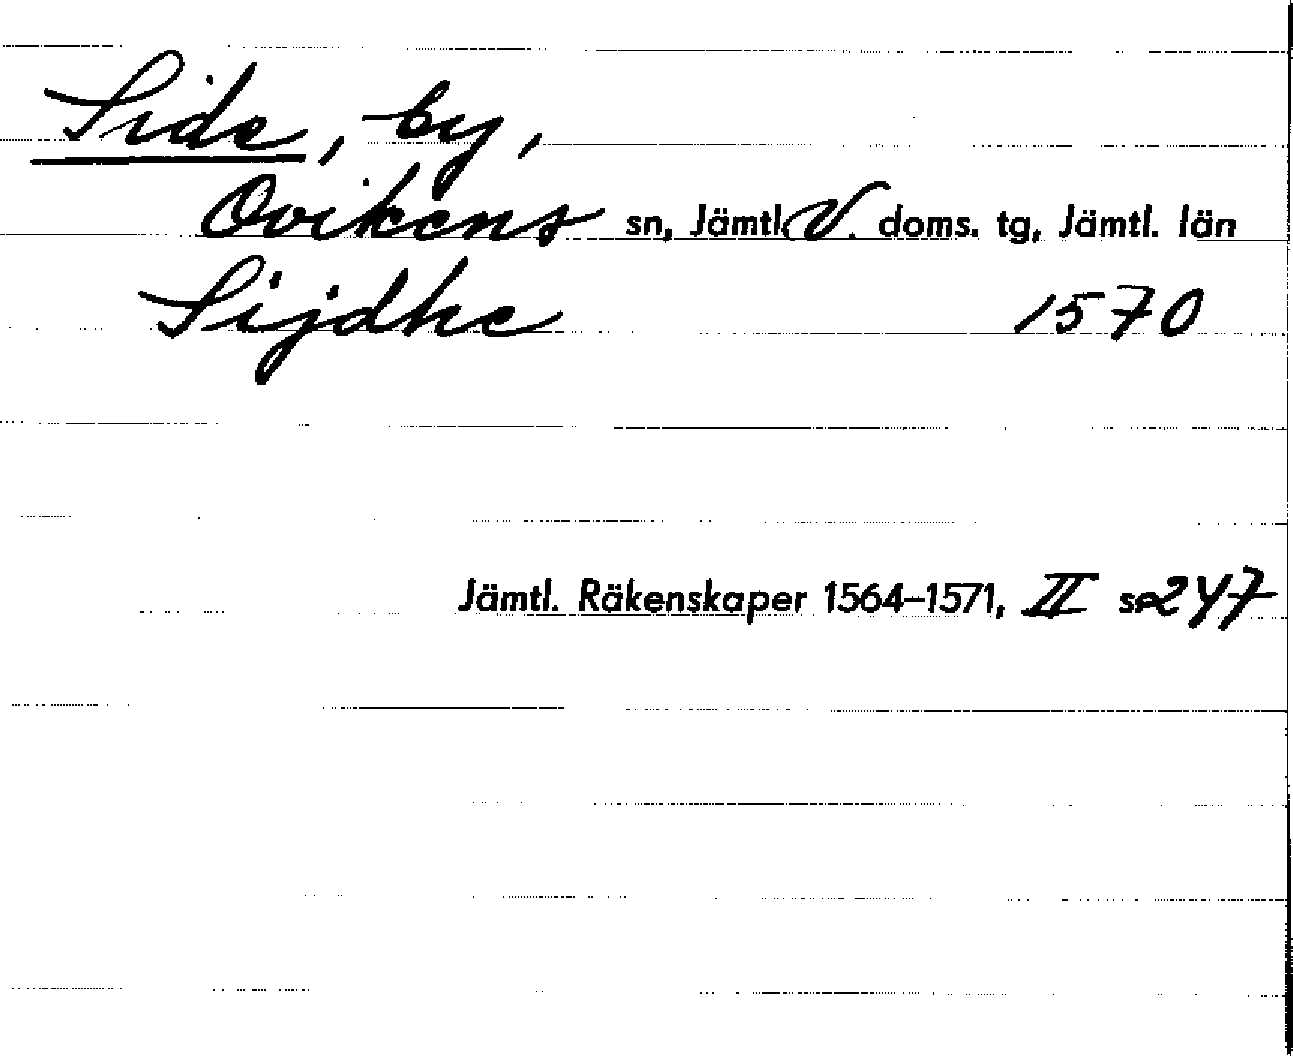 Side, by,
Ovikens sn, Jämtl. V. doms. tg, Jämtl. län
Sijdhe 1570
Jämtl. Räkenskaper 1564–1571, II s. 247